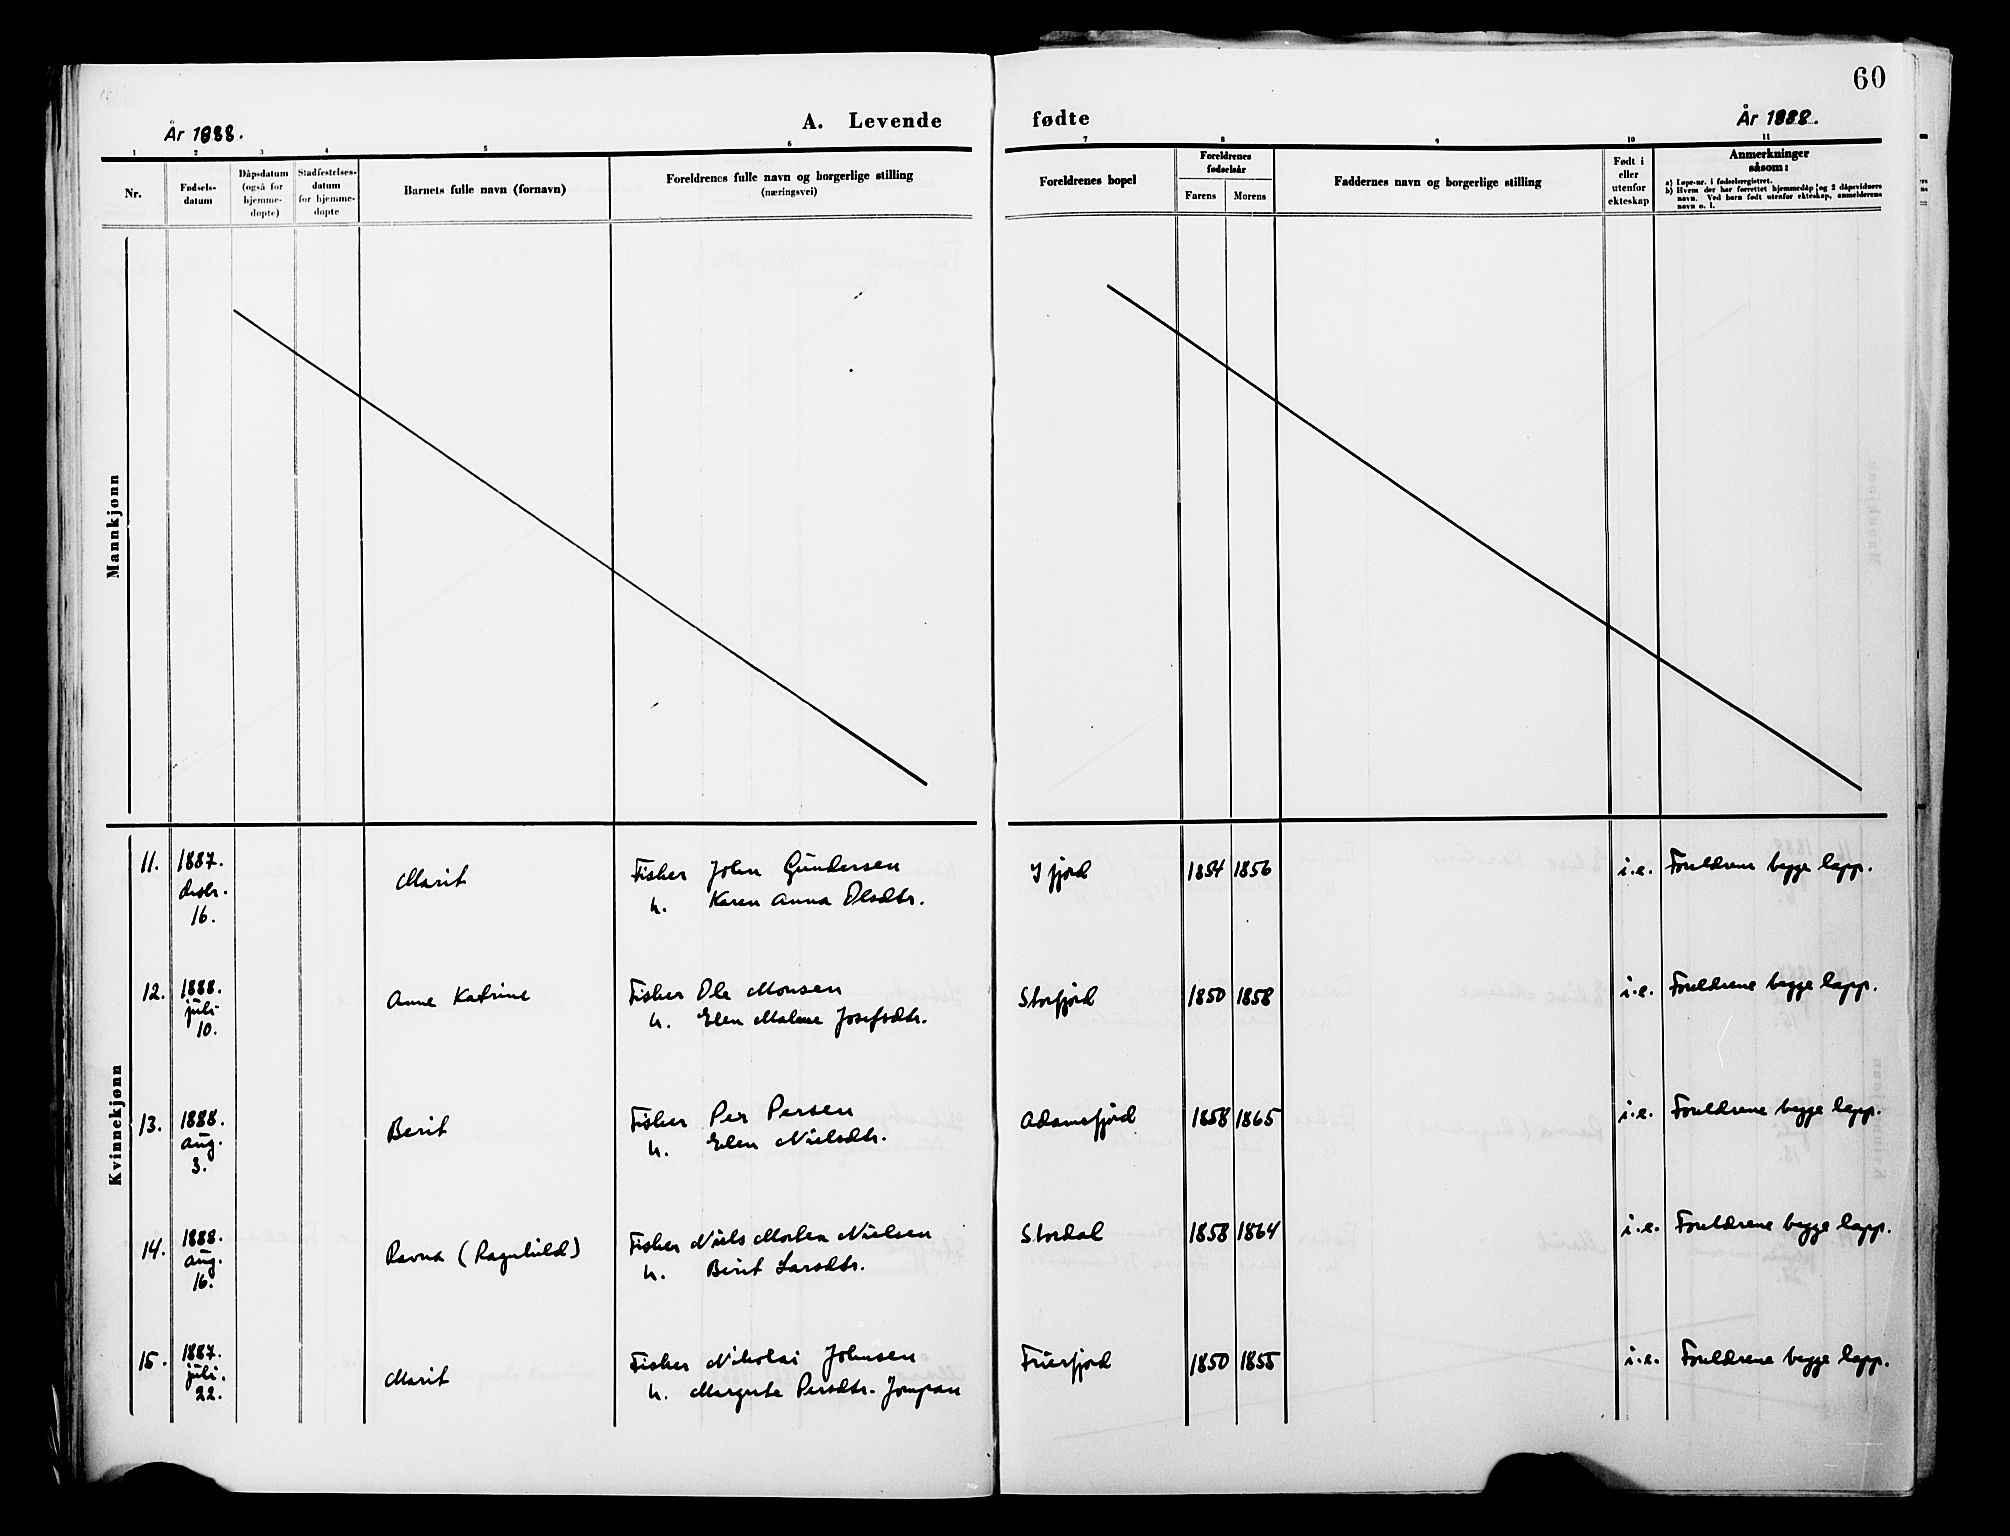 60
År 1888.
A. Levende
fødte
År 1888.
1 2 3 4 5 6 7 8 9 10 11
Nr.
Fødsels-
datum
Dåpsdatum
(også for
hjemme-
døpte)
Stadfestelses-
datum
for hjemme-
døpte
Barnets fulle navn (fornavn)
Foreldrenes fulle navn og borgerlige stilling
(næringsvei)
Foreldrenes bopel
Foreldrenes
fødselsår
Farens
Morens
Faddernes navn og borgerlige stilling
Født i
eller
utenfor
ekteskap
Anmerkninger
såsom:
a) Løpe-nr. i fødselsregistret.
b) Hvem der har forrettet hjemmedåp og 2 dåpsvidners
navn. Ved barn født utenfor ekteskap, anmelderens
navn o. l.
Mannkjønn
Kvinnekjønn
11. 1887. Marit Fisker John Gundersen Ifjord 1854 1856 i.e. Foreldrene begge lapp.
desbr. h. Karen Anna Olsdtr.
16.
12. 1888. Anne Katrine Fisker Ole Monsen Storfjord 1850 1858 i.e. Foreldrene begge lapp.
juli h. Elen Malene Josefsdtr.
10.
13. 1888. Berit Fisker Per Persen Adamsfjord 1858 1865 i.e. Foreldrene begge lapp.
aug. h. Elen Nielsdtr.
3.
14. 1888. Ravna (Ragnhild) Fisker Niels Morten Nielsen Stordal 1858 1864 i.e. Foreldrene begge lapp.
aug. h. Berit Larsdtr.
16.
15. 1887. Marit Fisker Nikolai Johnsen Frierfjord 1850 1855 i.e. Foreldrene begge lapp.
juli. h. Margrete Persdtr. Jompan
22.